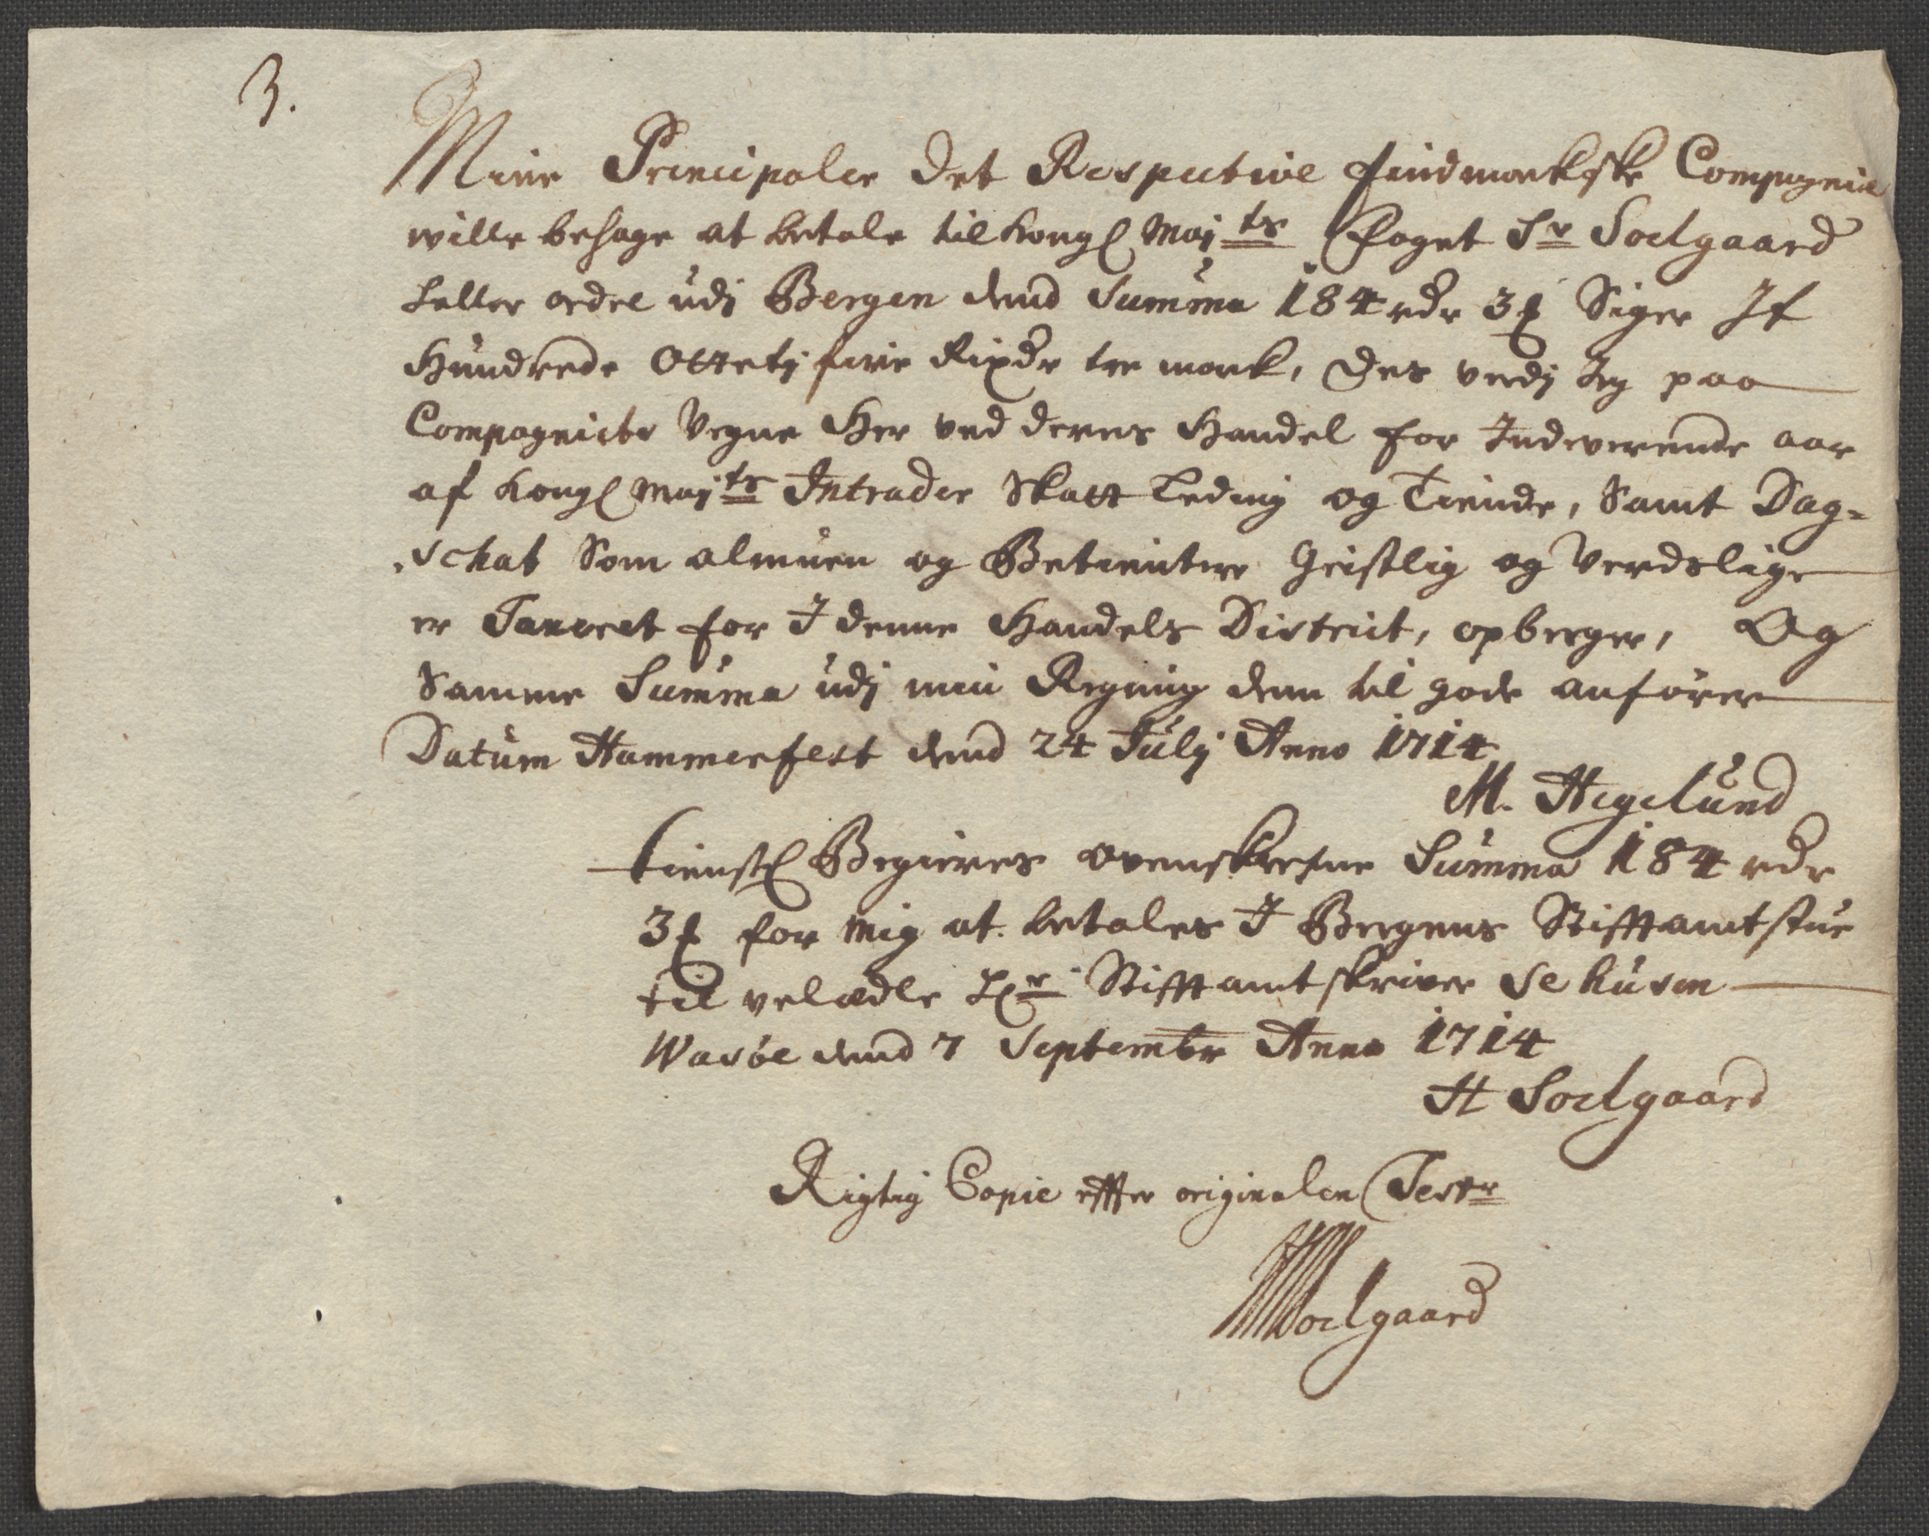 3.
Mine Principaler Det Respective findmarkske Compagnie
wille behage at betale til Kongl Maj:ts Foget Sr Soelgaard
heller ordre udj Bergen dend Summa 184 rdr 3 ꝑ Siger It
Hundrede Ottetj fire Rixdr tre mark, Des verdj Jeg paa
Compagniets Vegne Her ved deres Handel for Indeverende aar
af Kongl Maj:ts Intrader Skatt Leding og Tiende, Samt Dag=
schat Som almuen og Betientere Geistlig og Verdslige
er Taxeret for I denne Handels District, opberger, Og
Samme Summa udj min Regning dem til gode anfører
Datum Hammerfest dend 24 Julj Anno 1714
M. Hegelund
tienstl Begieres ovenskrefne Summa 184 rdr
3 ꝑ for mig at betales I Bergens Stifftamtstue
til velædle Hr Stifftamtskriver Schusen
Wasøe dend 7 Septembr Anno 1714
H Soelgaard
Rigtig Copie effter originalen Tester
HSoelgaard